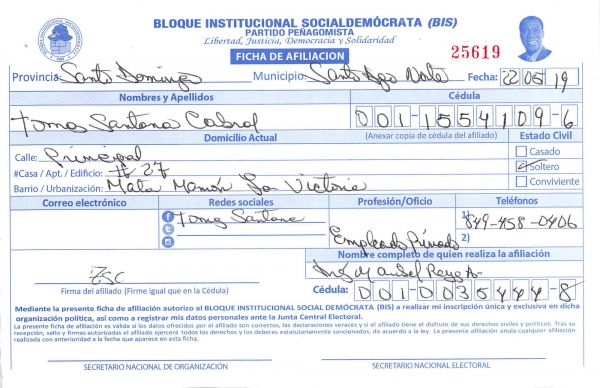 BLOQUE INSTITUCIONAL SOCIALDEMÓCRATA (BIS)
PARTIDO PEÑAGOMISTA
Libertad, Justicia, Democracia y Solidaridad
FICHA DE AFILIACION
25619
Provincia: Santo Domingo Municipio: Santo Dgo Norte Fecha: 22 05 19
Nombres y Apellidos Cédula
Tomas Santana Cabral 001-1554109-6
Domicilio Actual (Anexar copia de cédula del afiliado) Estado Civil
Calle: Principal Casado
#Casa / Apt. / Edificio: # 27 Soltero
Barrio / Urbanización: Mata Mamón La Victoria Conviviente
Correo electrónico Redes sociales Profesión/Oficio Teléfonos
Tomas Santana 1) 849-458-0406
Empleado Privado 2)
Nombre completo de quien realiza la afiliación
TSC
Firma del afiliado (Firme igual que en la Cédula) Cédula: 001-0035444-8
Mediante la presente ficha de afiliación autorizo al BLOQUE INSTITUCIONAL SOCIAL DEMÓCRATA (BIS) a realizar mi inscripción única y exclusiva en dicha
organización política, así como a registrar mis datos personales ante la Junta Central Electoral.
La presente ficha de afiliación es válida si los datos ofrecidos por el afiliado son correctos, las declaraciones veraces y si el afiliado tiene el disfrute de sus derechos civiles y políticos. Tras su
recepción, sello y firmas autorizadas el afiliado ejercerá todos los derechos y los deberes estatutariamente sancionados, de acuerdo a la ley. La presente afiliación anula cualquier afiliación
realizada con anterioridad a la fecha que aparece en esta ficha.
SECRETARIO NACIONAL DE ORGANIZACIÓN SECRETARIO NACIONAL ELECTORAL